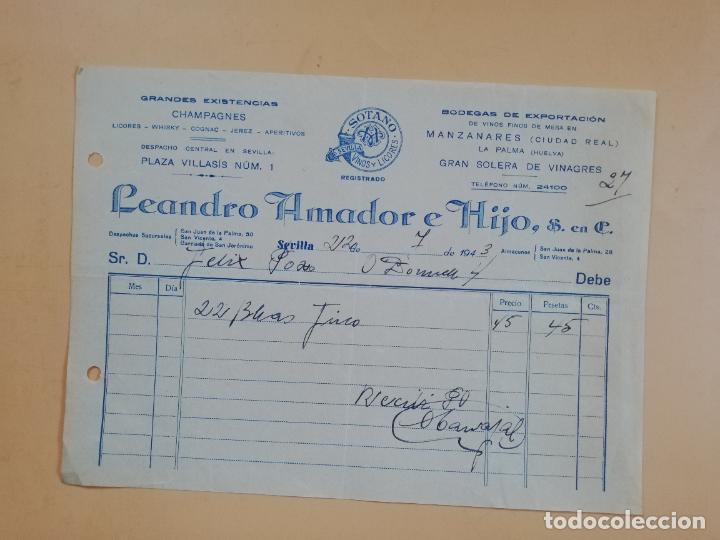 GRANDES EXISTENCIAS
CHAMPAGNES
LICORES - WHISKY - COGNAC - JEREZ - APERITIVOS
DESPACHO CENTRAL EN SEVILLA:
PLAZA VILLASÍS NÚM. 1
SOTANO
SEVILLA
VINOS Y LICORES
REGISTRADO
BODEGAS DE EXPORTACIÓN
DE VINOS FINOS DE MESA EN
MANZANARES (CIUDAD REAL)
LA PALMA (HUELVA)
GRAN SOLERA DE VINAGRES
TELÉFONO NÚM. 24100
27
Leandro Amador e Hijo, S. en C.
Despachos Sucursales San Juan de la Palma, 30
San Vicente, 4
Barriada de San Jerónimo
Sevilla 22 de 7 de 1943
Almacenes San Juan de la Palma, 28
San Vicente, 4
Sr. D. Felix Pozo O'Donnell 7 Debe
Mes Día Precio Pesetas Cts.
22 Blcas Tinto 45 45
Recibí
Carvajal
todocoleccion.net